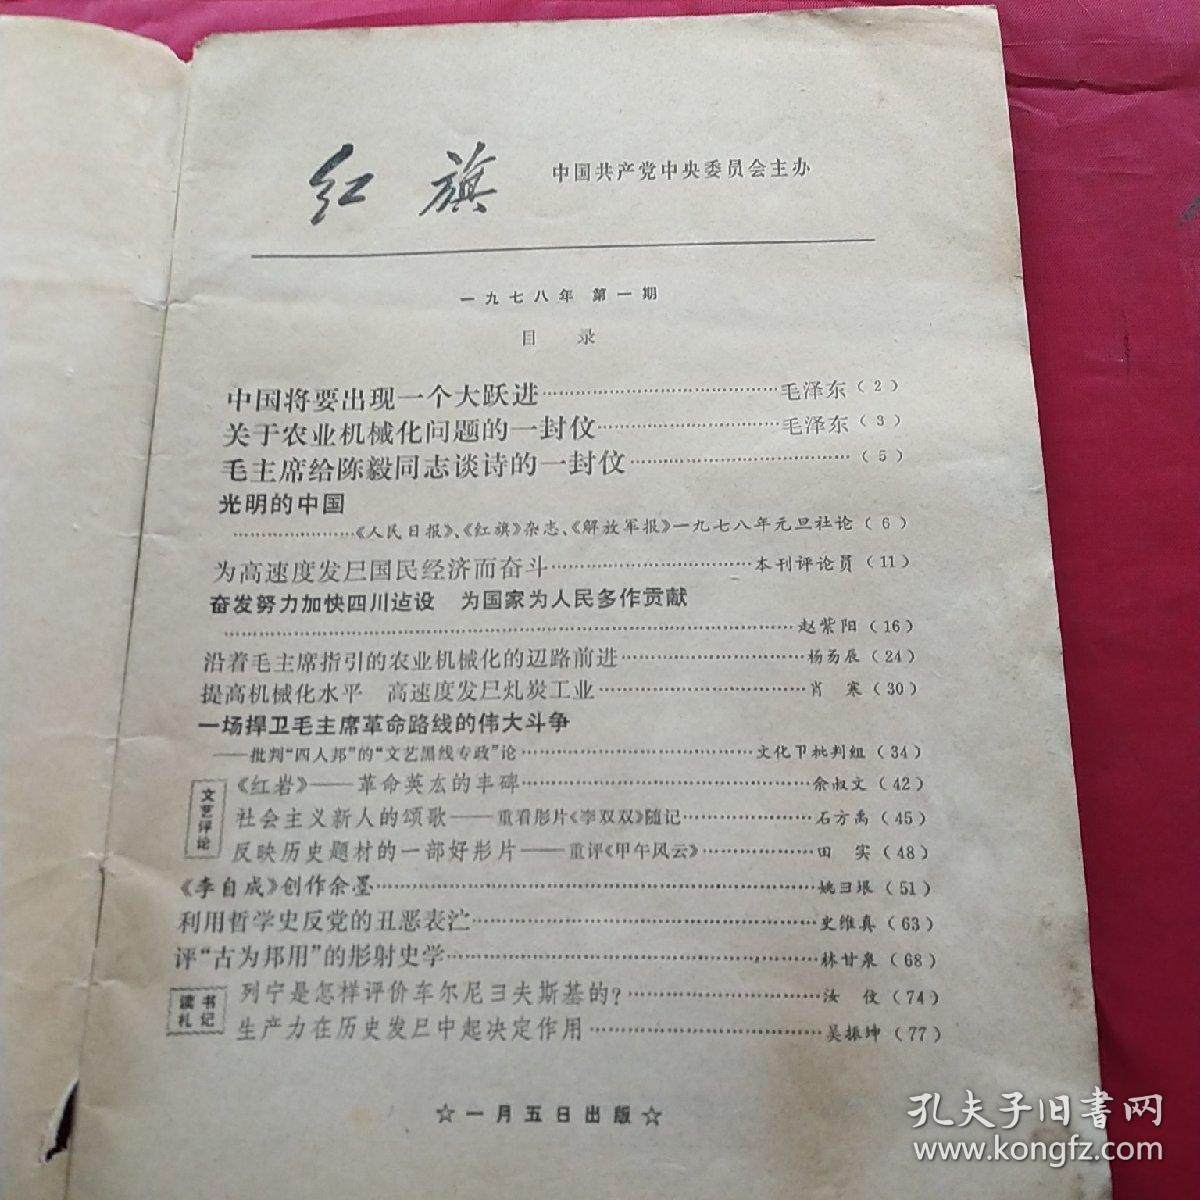 红旗 中国共产党中央委员会主办
一九七八年 第一期
目 录
中国将要出现一个大跃进……毛泽东(2)
关于农业机械化问题的一封伩……毛泽东(3)
毛主席给陈毅同志谈诗的一封伩……(5)
光明的中国
……《人民日报》、《红旗》杂志、《解放军报》一九七八年元旦社论(6)
为高速度发𡰪国民经济而奋斗……本刊评论员(11)
奋发努力加快四川迠设 为国家为人民多作贡献
……赵紫阳(16)
沿着毛主席指引的农业机械化的辺路前进……杨易辰(24)
提高机械化水平 高速度发𡰪炗炭工业……肖 寒(30)
一场捍卫毛主席革命路线的伟大斗争
——批判“四人邦”的“文艺黑线专政”论……文化卩批判组(34)
文艺评论
《红岩》——革命英厷的丰碑……余叔文(42)
社会主义新人的颂歌——重看彤片《李双双》随记……石方禹(45)
反映历史题材的一部好彤片——重评《甲午风云》……田 实(48)
《李自成》创作余墨……姚彐垠(51)
利用哲学史反党的丑恶表㳷……史维真(63)
评“古为邦用”的彤射史学……林甘泉(68)
读书札记
列宁是怎样评价车尔尼彐夫斯基的?……汝 伩(74)
生产力在历史发𡰪中起决定作用……吴振坤(77)
☆一月五日出版☆
孔夫子旧书网
www.kongfz.com